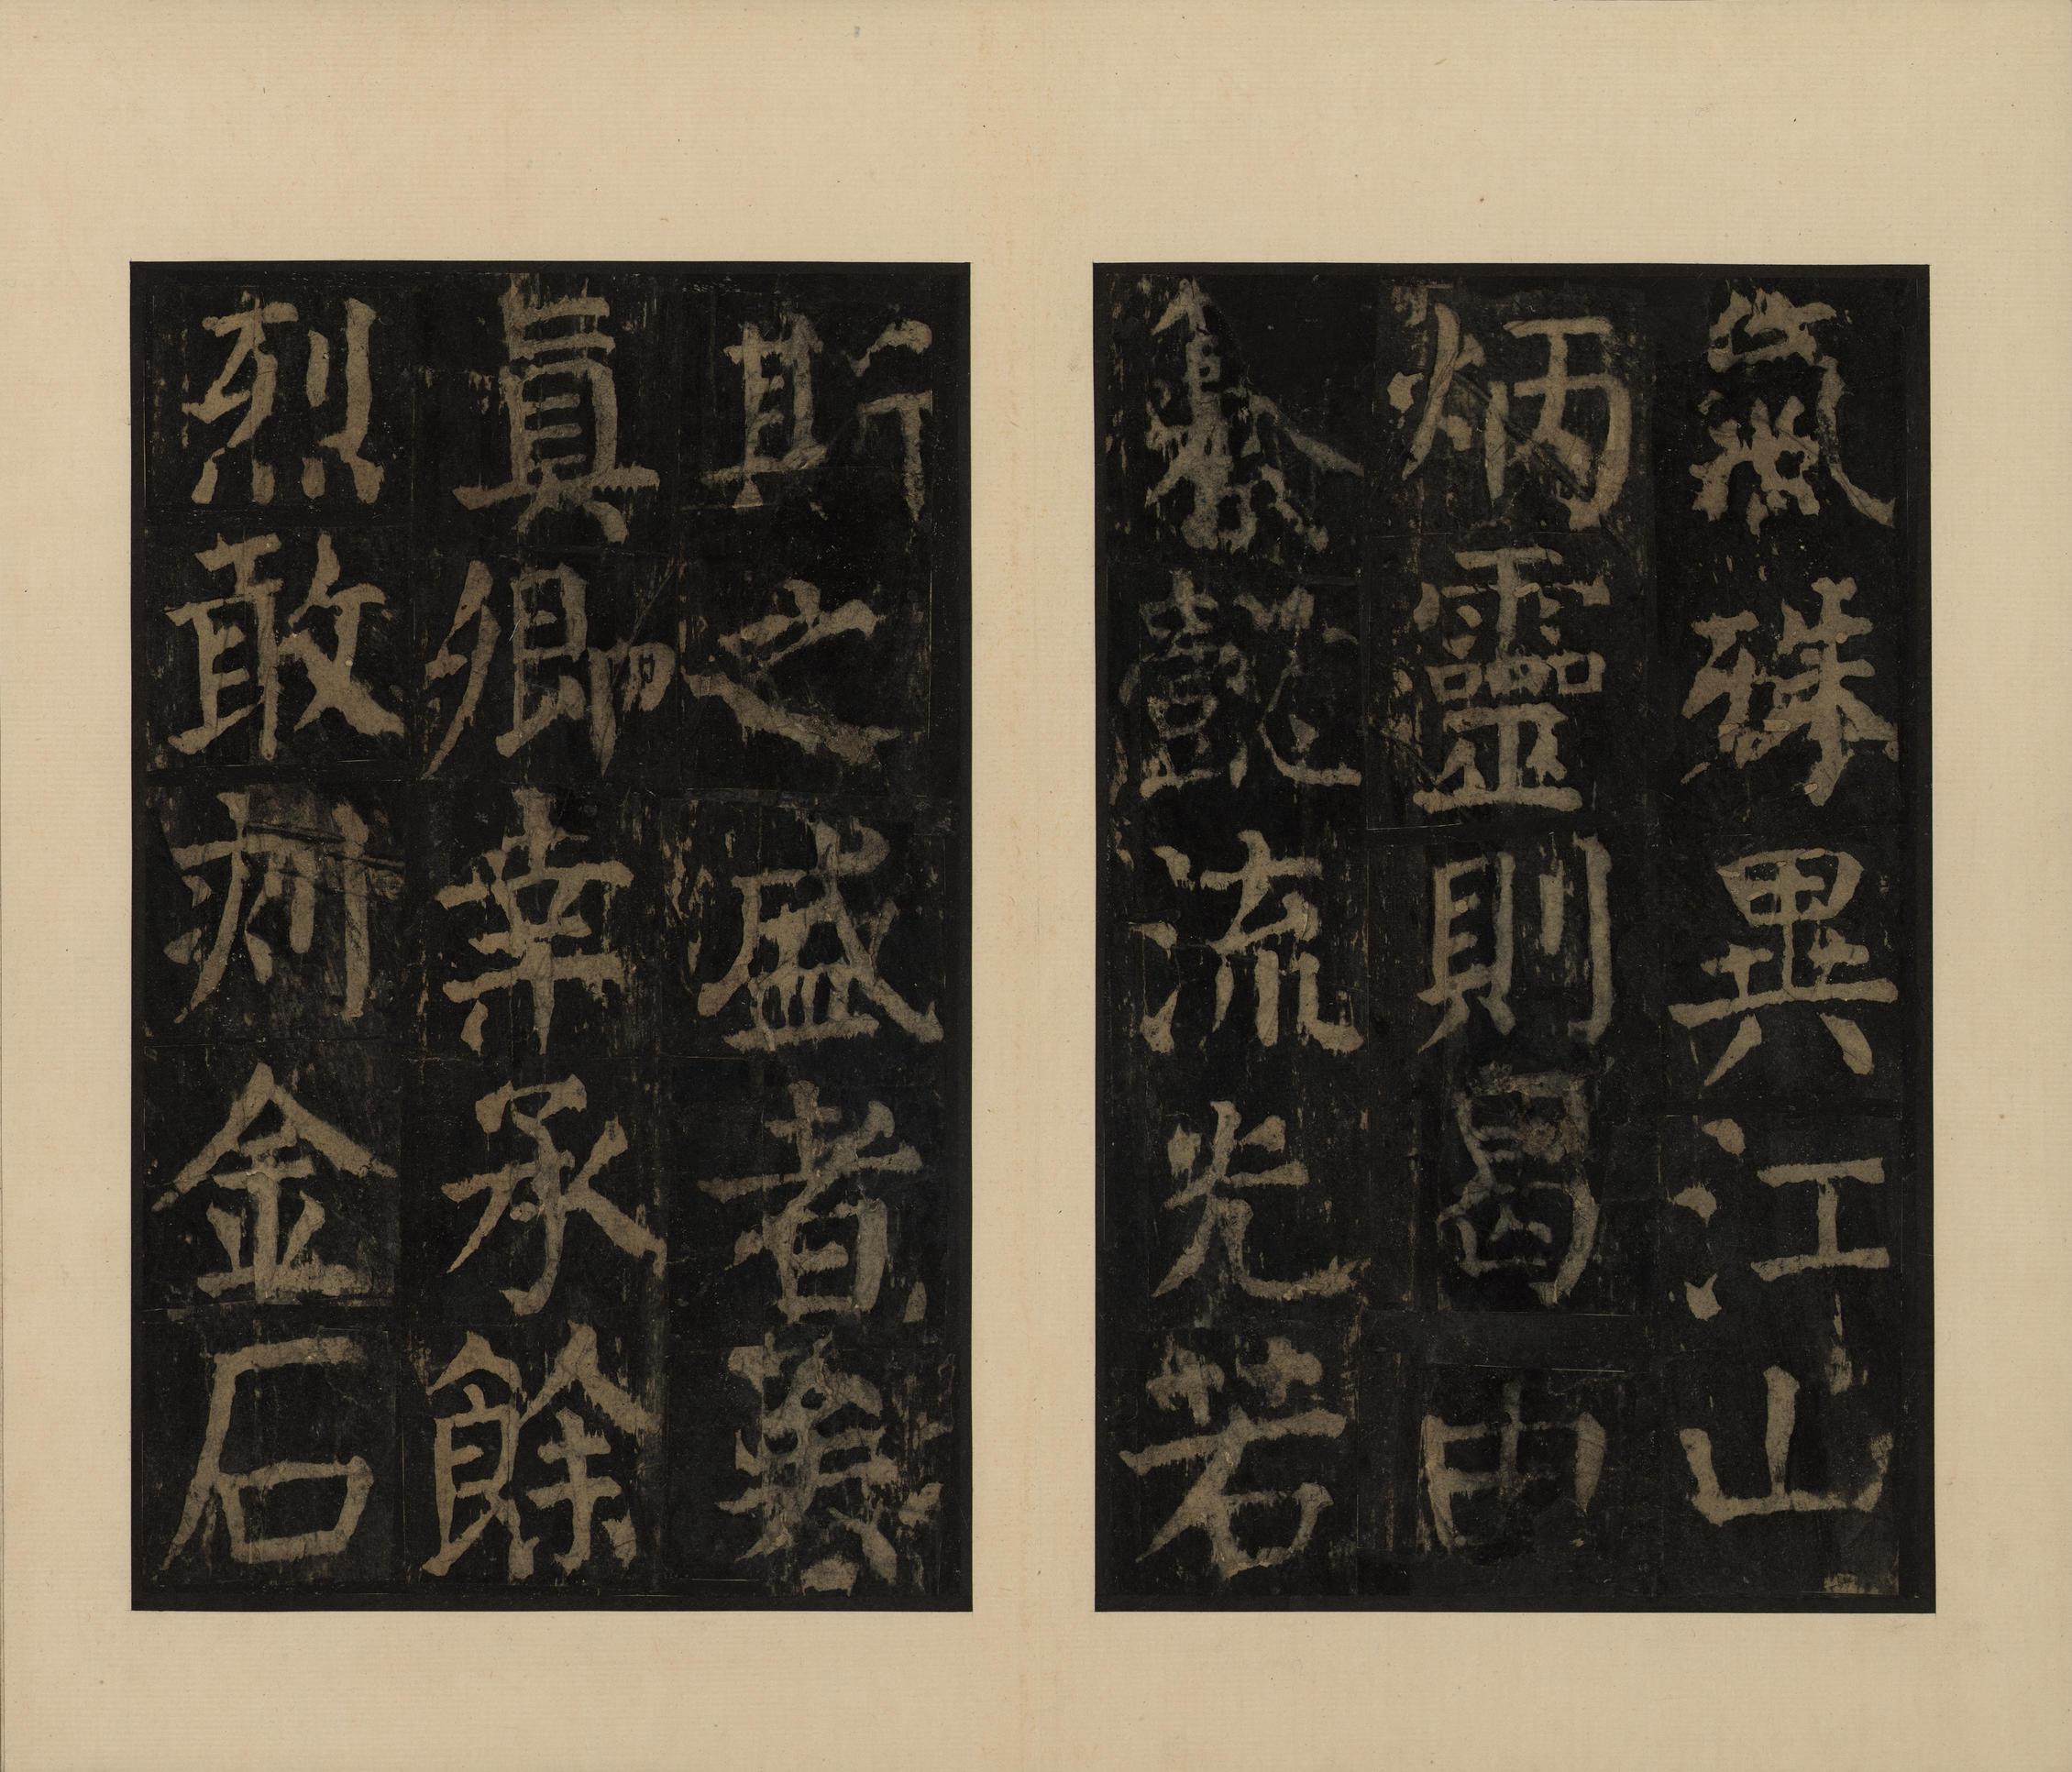 氣殊異江山
炳靈則曷由
纂懿流光若
斯之盛者矣
真卿幸承餘
烈敢刻金石